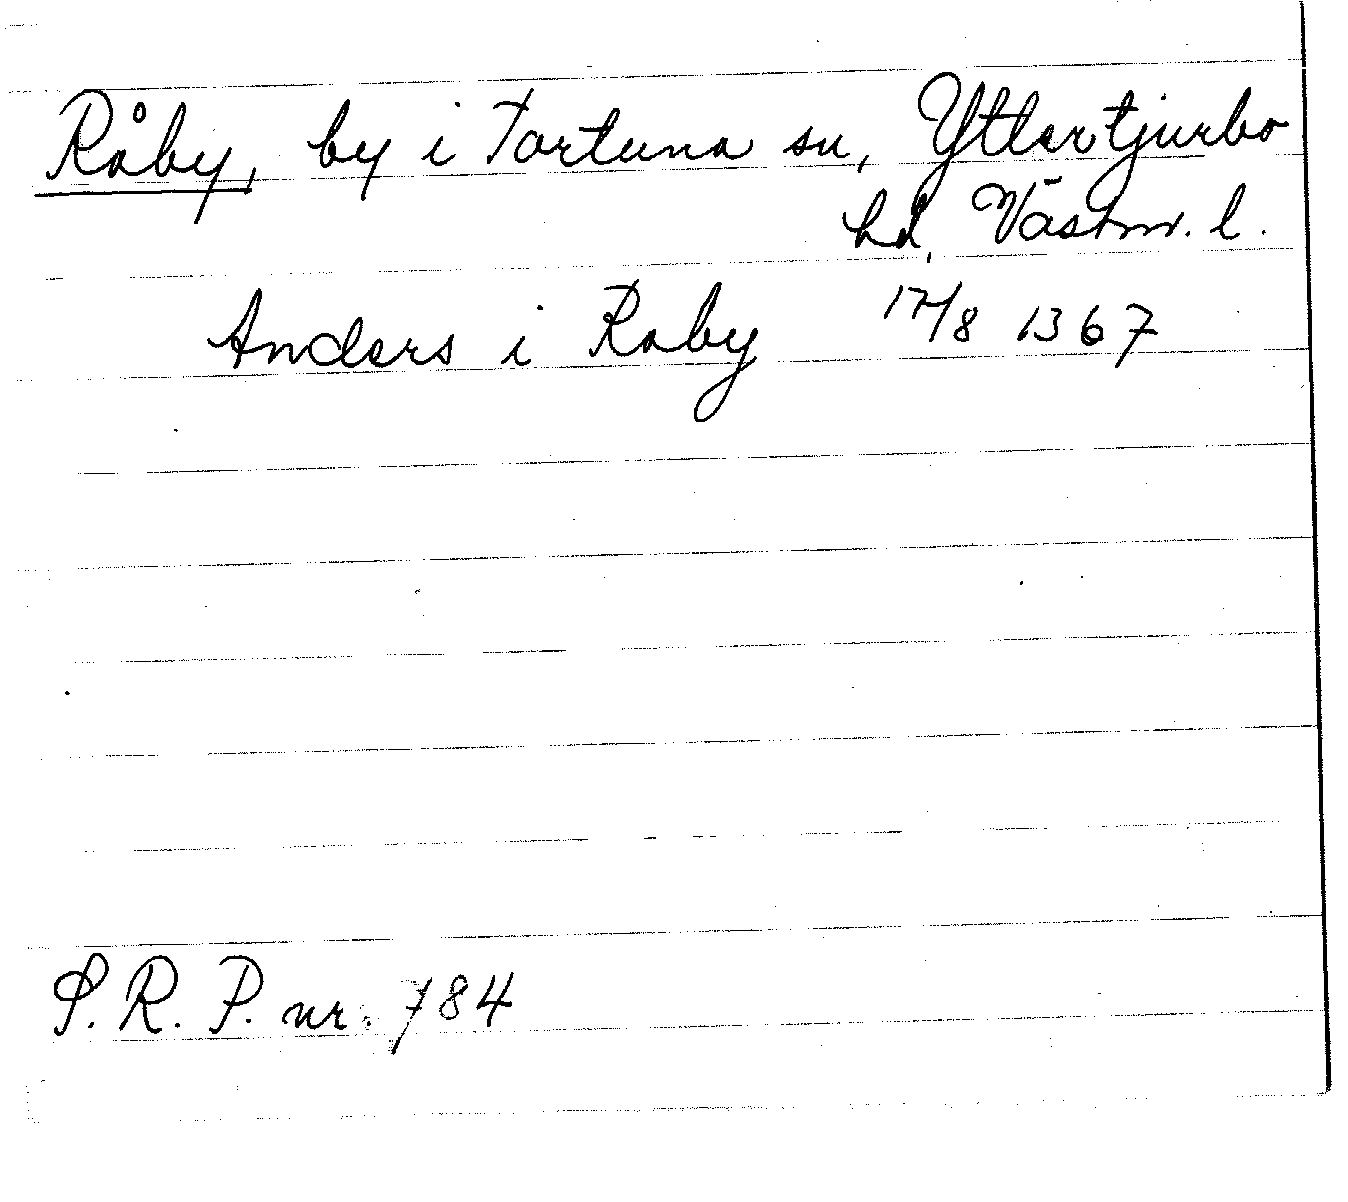 Råby, by i Tortuna sn, Yttertjurbo
hd, Västm. l.
Anders i Raby 17/8 1367
S.R.P. nr. 784